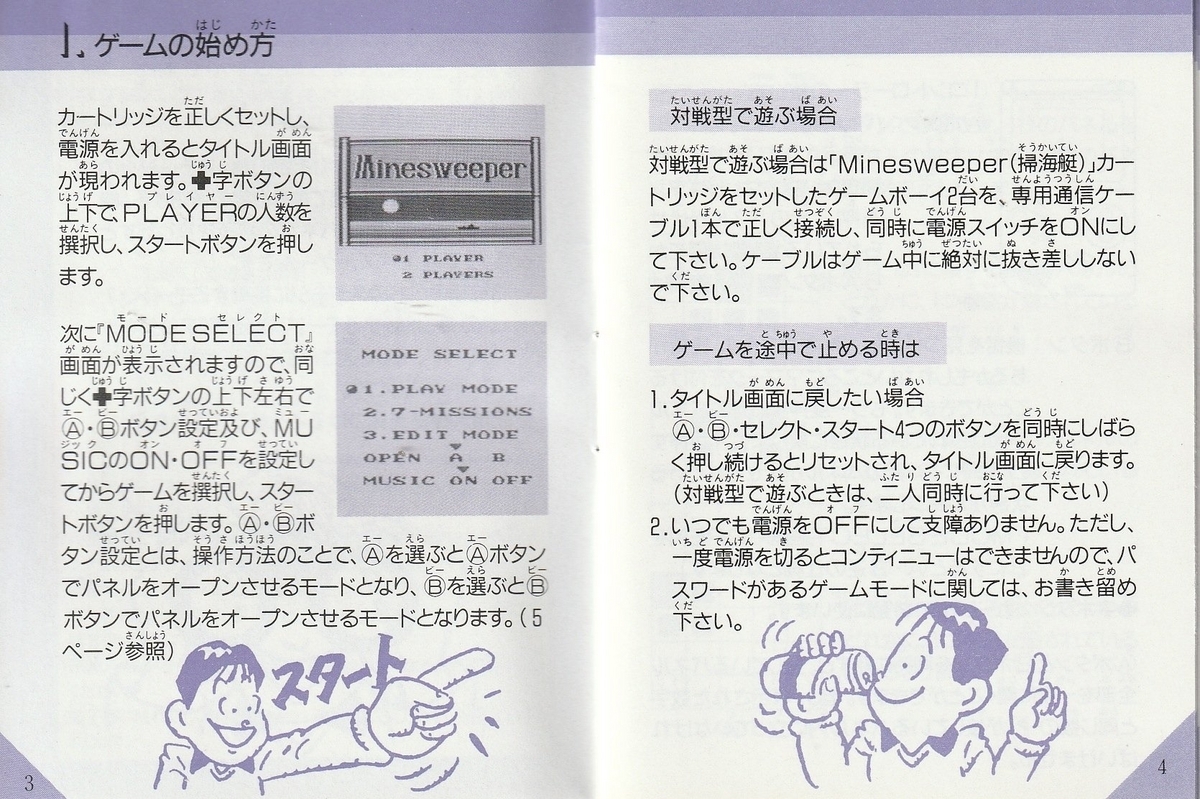 1. ゲームの始め方
カートリッジを正しくセットし、
電源を入れるとタイトル画面
が現われます。✚字ボタンの
上下で、PLAYERの人数を
撰択し、スタートボタンを押し
ます。
Minesweeper
1 PLAYER
2 PLAYERS
次に『MODE SELECT』
画面が表示されますので、同
じく✚字ボタンの上下左右で
Ⓐ・Ⓑボタン設定及び、MU
SICのON・OFFを設定し
てからゲームを撰択し、スター
トボタンを押します。Ⓐ・Ⓑボ
タン設定とは、操作方法のことで、Ⓐを選ぶとⒶボタン
でパネルをオープンさせるモードとなり、Ⓑを選ぶとⒷ
ボタンでパネルをオープンさせるモードとなります。(5
ページ参照)
MODE SELECT
1.PLAY MODE
2.7-MISSIONS
3.EDIT MODE
OPEN A B
MUSIC ON OFF
スタート
3
対戦型で遊ぶ場合
対戦型で遊ぶ場合は「Minesweeper(掃海艇)」カー
トリッジをセットしたゲームボーイ2台を、専用通信ケー
ブル1本で正しく接続し、同時に電源スイッチをONにし
て下さい。ケーブルはゲーム中に絶対に抜き差ししない
で下さい。
ゲームを途中で止める時は
1.タイトル画面に戻したい場合
Ⓐ・Ⓑ・セレクト・スタート4つのボタンを同時にしばら
く押し続けるとリセットされ、タイトル画面に戻ります。
(対戦型で遊ぶときは、二人同時に行って下さい)
2.いつでも電源をOFFにして支障ありません。ただし、
一度電源を切るとコンティニューはできませんので、パ
スワードがあるゲームモードに関しては、お書き留め
下さい。
4